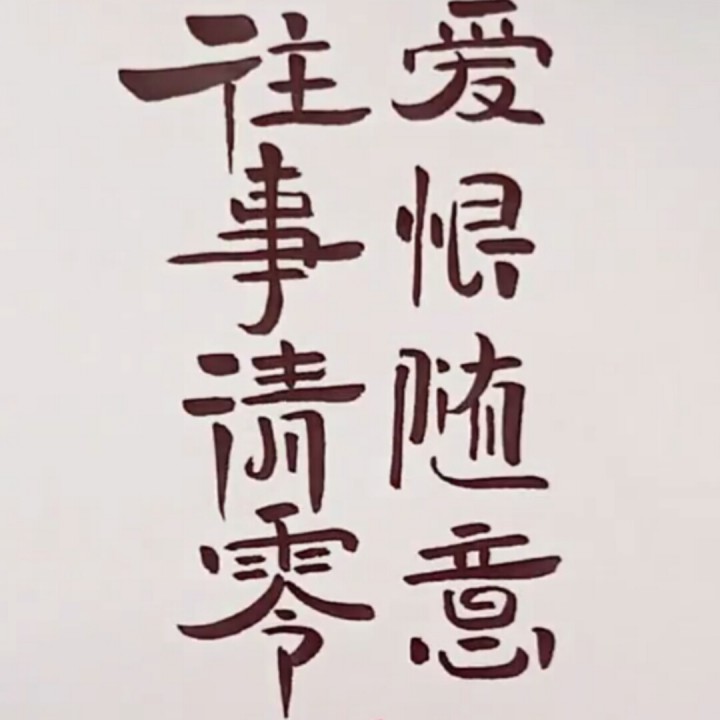 爱恨随意
往事清零